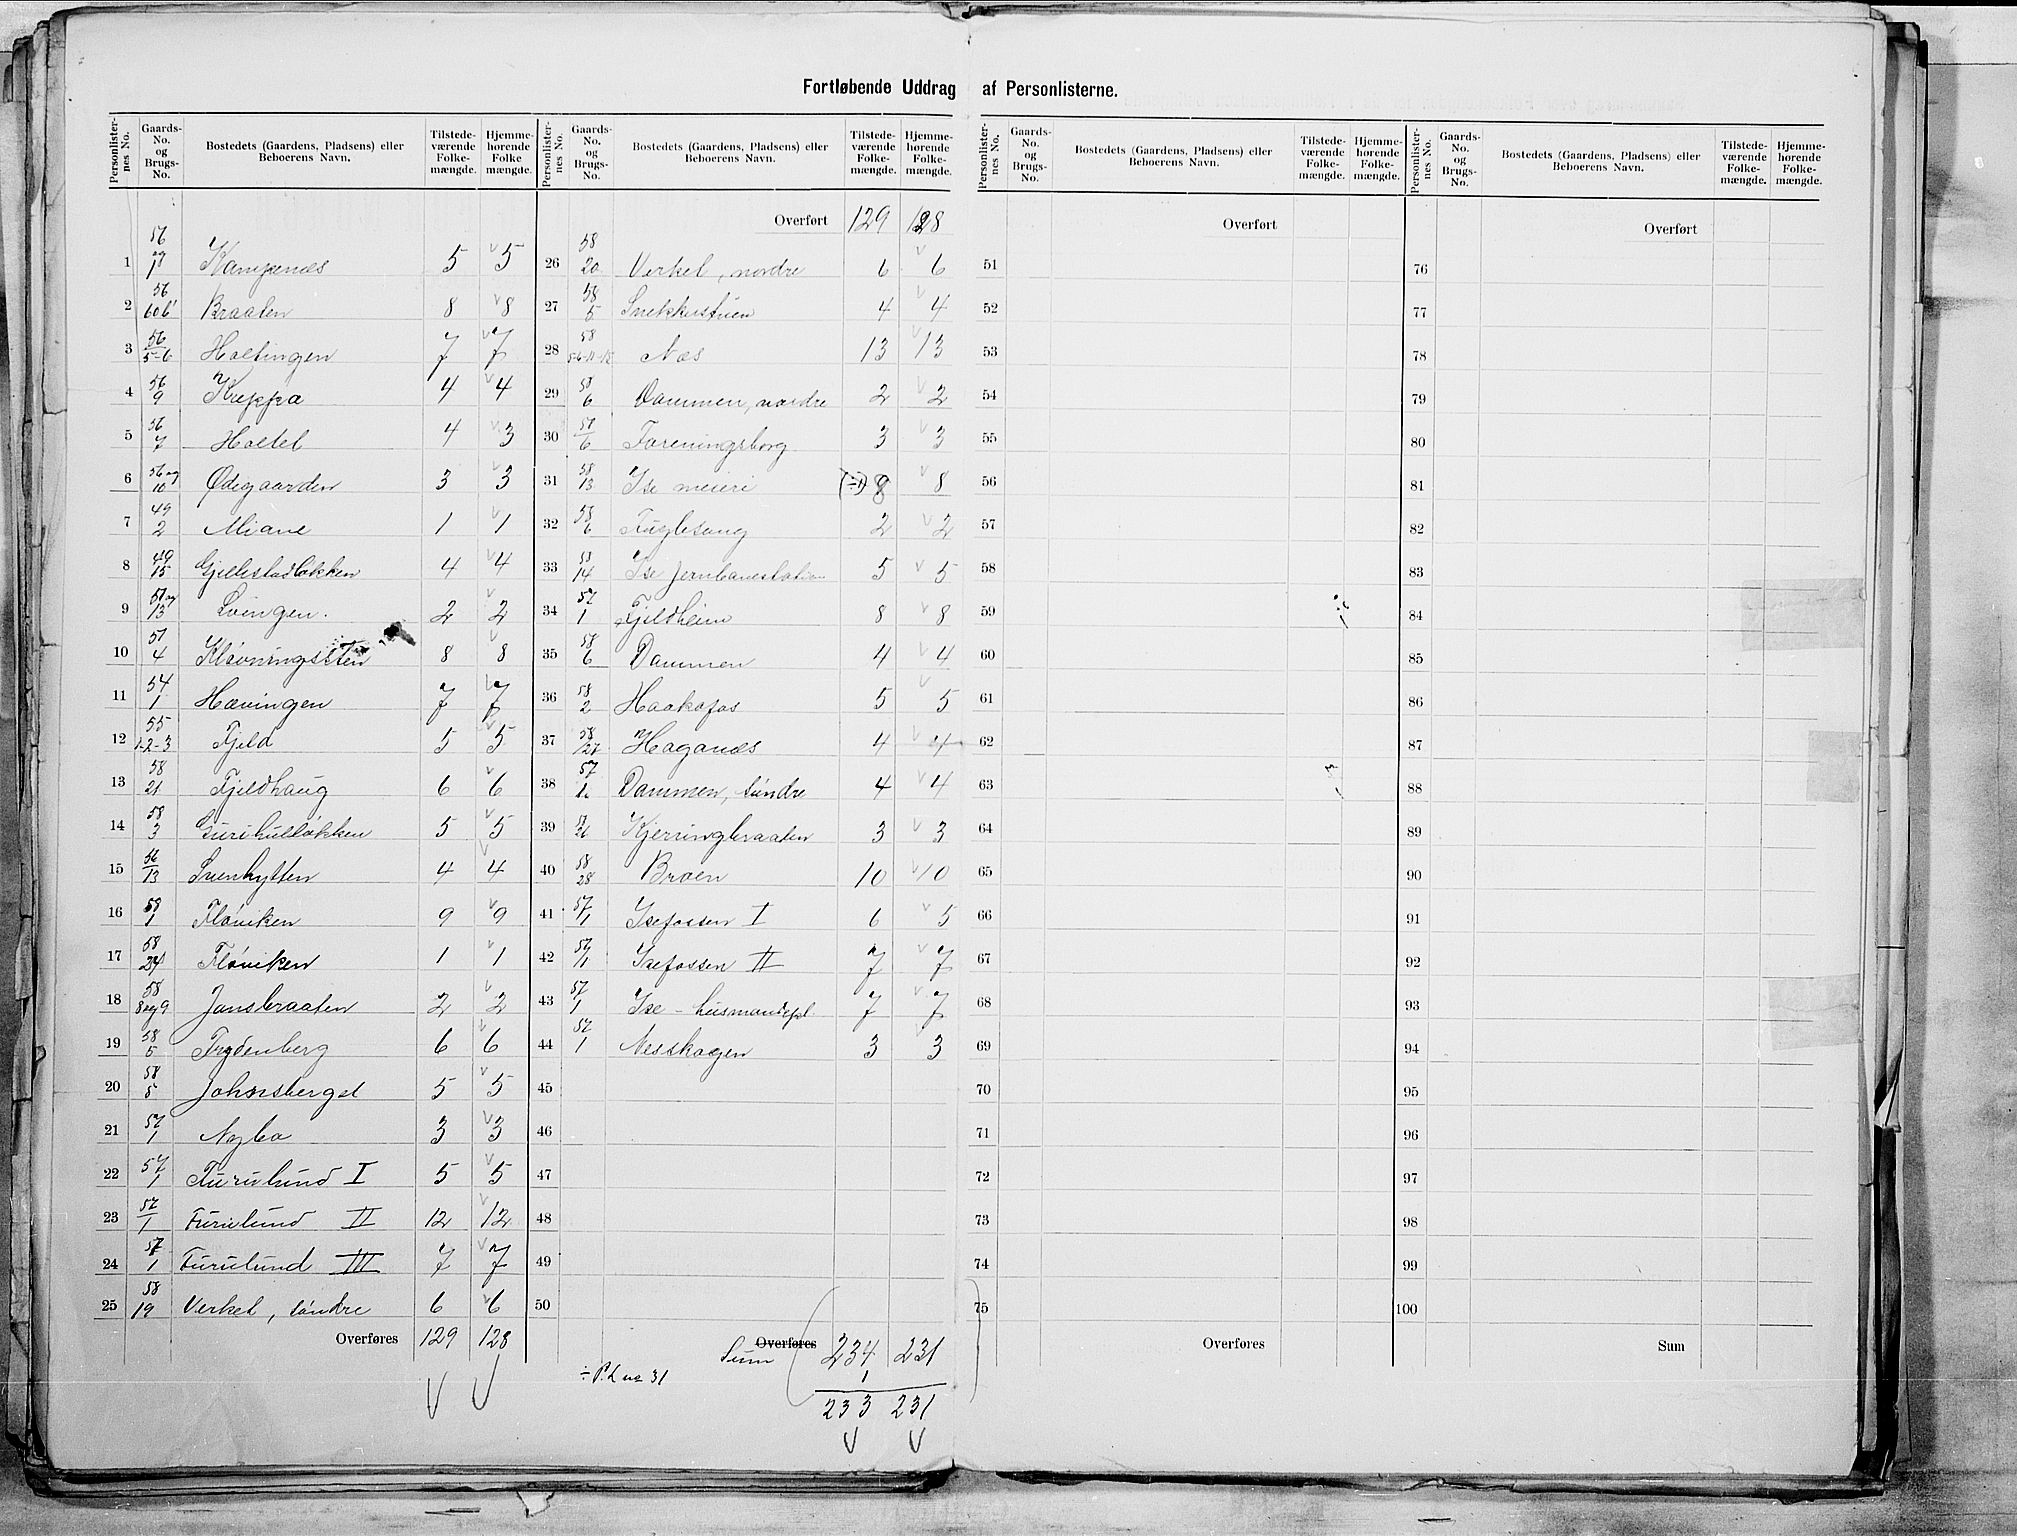 Fortløbende Uddrag af Personlisterne.
Personlisternes No. Gaards-No. og Brugs-No. Bostedets (Gaardens, Pladsens) eller Beboerens Navn. Tilstedeværende Folkemængde. Hjemmehørende Folkemængde.
1 56 og 1 Kampenæs 5 5
2 56 Braaten 8 8
3 56/5-6 Holtingen 7 7
4 56/9 Kreppa 4 4
5 56/7 Holtet 4 3
6 56 og 10 Ødegaarden 3 3
7 49/2 Miane 1 1
8 49/15 Gjellestadløkken 4 4
9 51 og 13 Svingen. 2 2
10 51/4 Kløvningssten 8 8
11 54/1 Hævingen 7 7
12 55/1-2-3 Fjeld 5 5
13 58/21 Fjeldhaug 6 6
14 58/3 Gurihulløkken 5 5
15 56/13 Svenhytten 4 4
16 58/1 Fløviken 9 9
17 58/24 Fløviken 1 1
18 58/8 og 9 Jansbraaten 2 2
19 58/5 Frydenberg 6 6
20 58/5 Johnsberget 5 5
21 57/1 Nybo 3 3
22 57/1 Furulund I 5 5
23 57/1 Furulund II 12 12
24 57/1 Furulund III 7 7
25 58/19 Verket, søndre 6 6
Overføres 129 128
Personlisternes No. Gaards-No. og Brugs-No. Bostedets (Gaardens, Pladsens) eller Beboerens Navn. Tilstedeværende Folkemængde. Hjemmehørende Folkemængde.
Overført 129 128
26 58/20 Verket, nordre 6 6
27 58/5 Snekkerstuen 4 4
28 58 Næs 13 13
29 58/6 Dammen, nordre 2 2
30 57/6 Foreningsborg 3 3
31 58/13 Ise meieri (÷1) 8 8
32 58/6 Fuglesang 2 2
33 58/14 Ise Jernbanestation 5 5
34 57/1 Fjeldheim 8 8
35 58/6 Dammen 4 4
36 58/2 Haakafos 5 5
37 58/27 Haganæs 4 4
38 57/1 Dammen, søndre 4 4
39 26 Kjerringbraaten 3 3
40 58/28 Broen 10 10
41 57/1 Isefossen I 6 5
42 57/1 Isefossen II 7 7
43 57/1 Ise - husmandspl. 7 7
44 57/1 Nesskogen 3 3
45
46
47
48
49
50
Overføres
Sum 234 231
1
÷ P.L no 31
233 231
Personlisternes No. Gaards-No. og Brugs-No. Bostedets (Gaardens, Pladsens) eller Beboerens Navn. Tilstedeværende Folkemængde. Hjemmehørende Folkemængde.
Overført
51
52
53
54
55
56
57
58
59
60
61
62
63
64
65
66
67
68
69
70
71
72
73
74
75
Overføres
Personlisternes No. Gaards-No. og Brugs-No. Bostedets (Gaardens, Pladsens) eller Beboerens Navn. Tilstedeværende Folkemængde. Hjemmehørende Folkemængde.
Overført
76
77
78
79
80
81
82
83
84
85
86
87
88
89
90
91
92
93
94
95
96
97
98
99
100
Sum